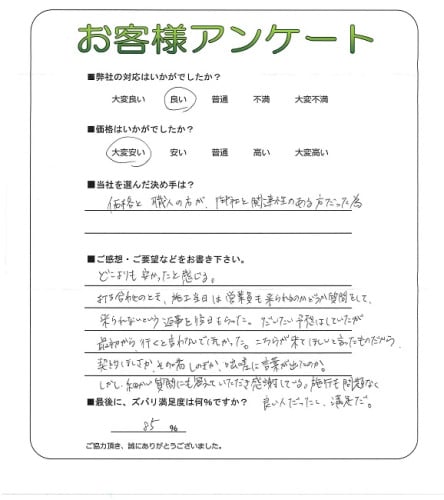 お客様アンケート
■弊社の対応はいかがでしたか？
大変良い 良い 普通 不満 大変不満
■価格はいかがでしたか？
大変安い 安い 普通 高い 大変高い
■当社を選んだ決め手は？
価格と職人の方が、御社と関連性のある方だった為
■ご感想・ご要望などをお書き下さい。
どこよりも安かったと感じる。
打ち合わせのとき、施工当日は営業員も来られるのかどうか質問をして、
来られないという返事を後日もらった。だいたい予想はしていたが
最初から行くと言わないでほしかった。こちらが来てほしいと言ったものだから、
契約ほしさか、その為しのぎか、咄嗟に言葉が出たのか。
しかし細かい質問にも答えていただき感謝している。施行も問題なく
良い人だったし、満足だ。
■最後に、ズバリ満足度は何％ですか？
85 ％
ご協力頂き、誠にありがとうございました。